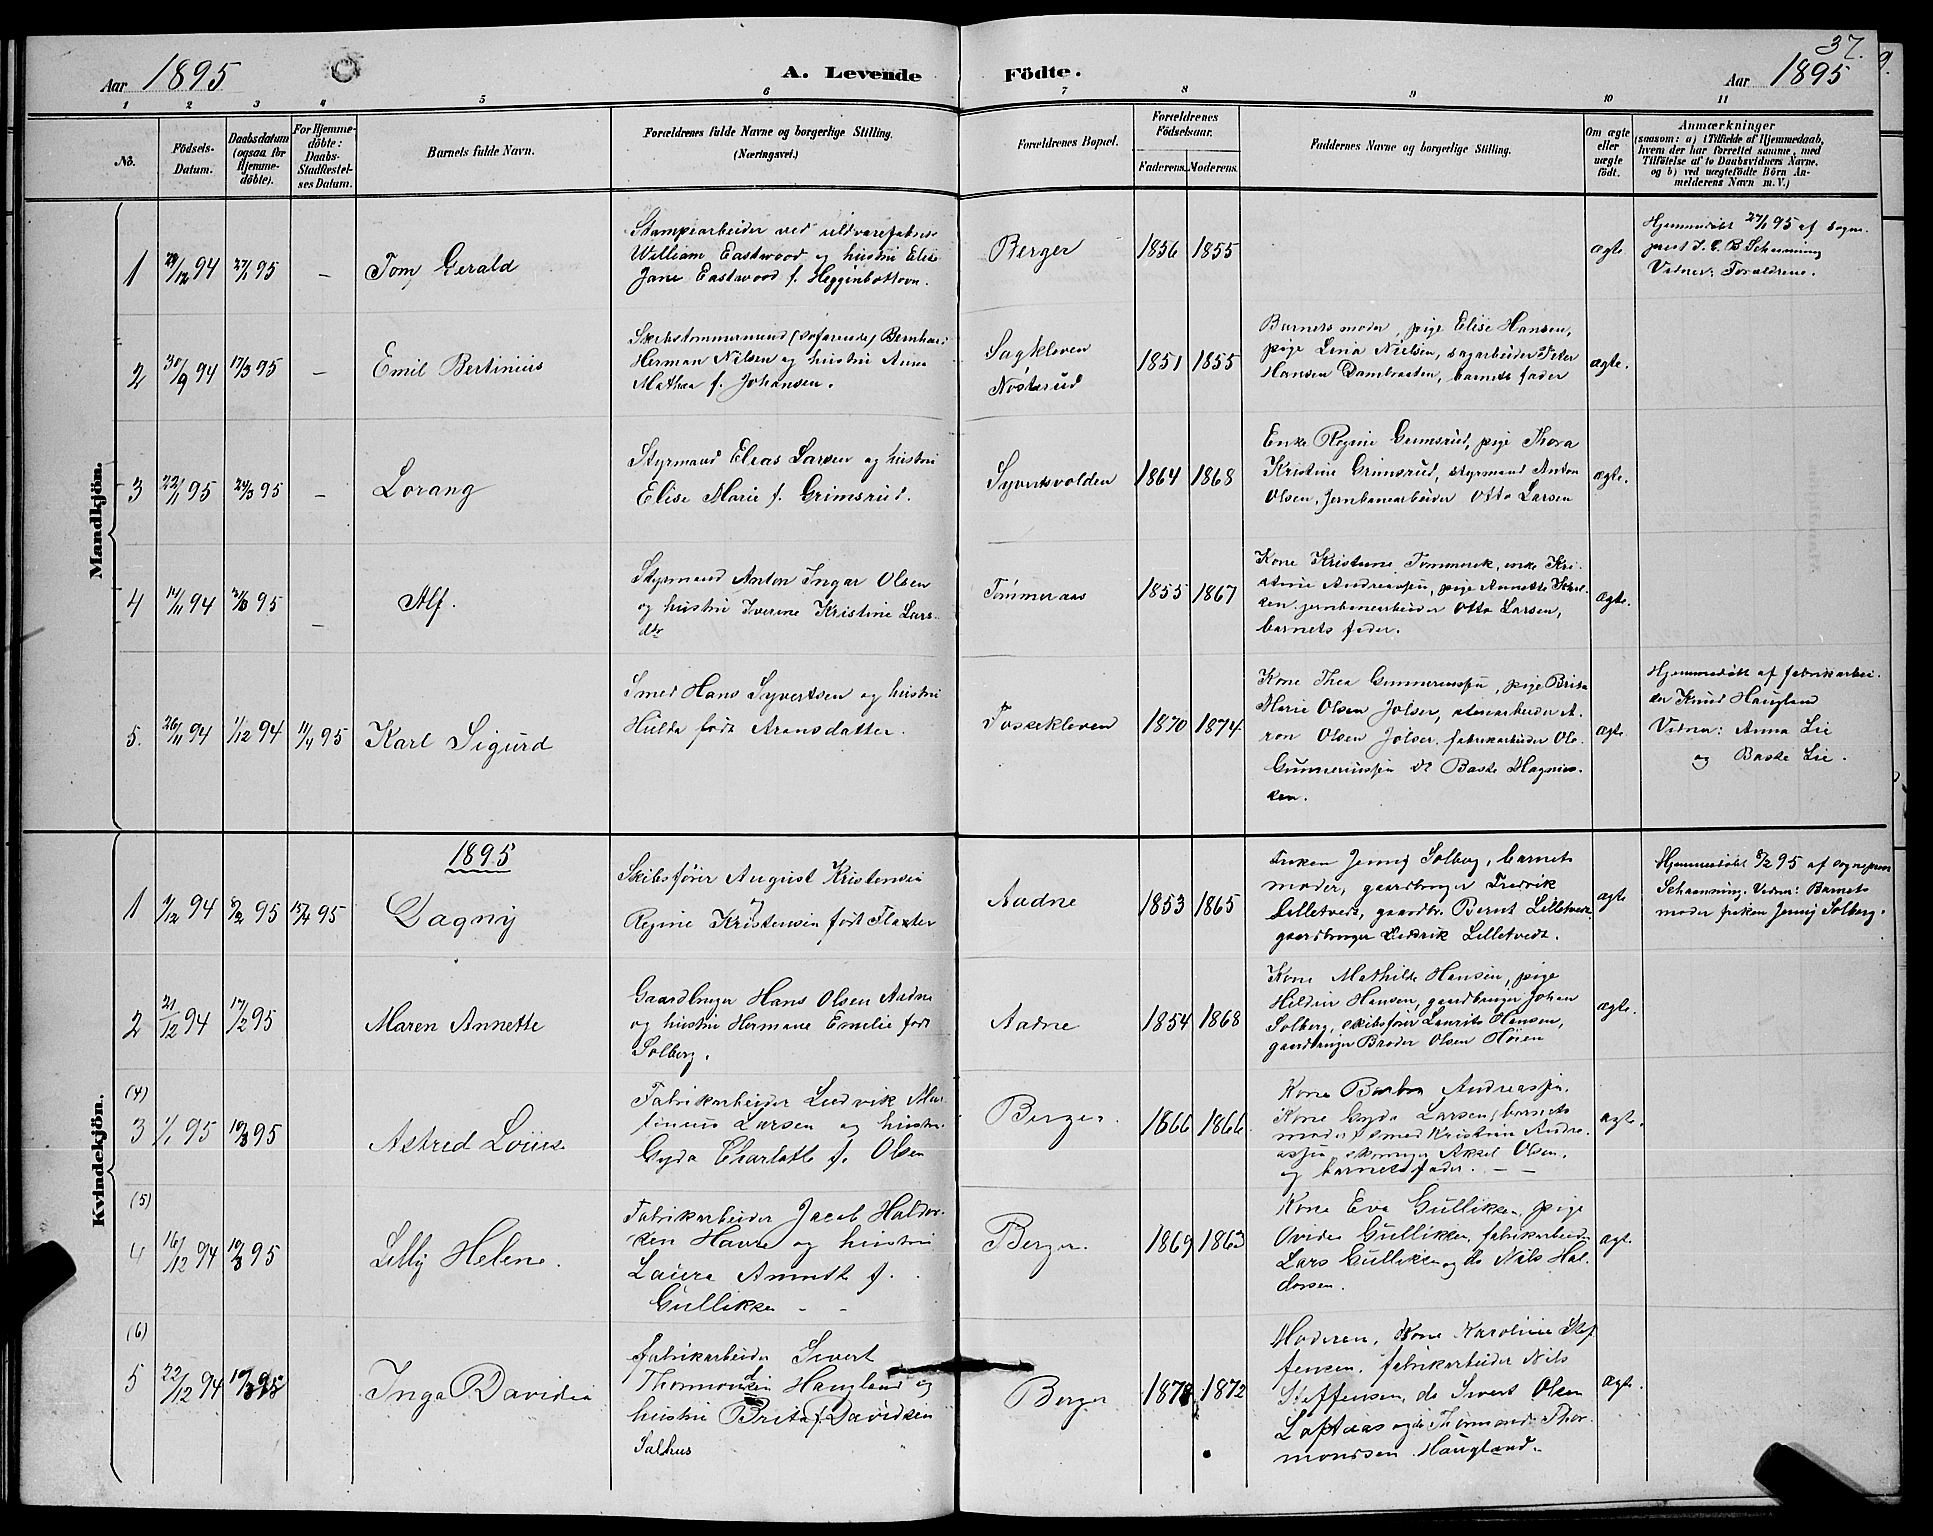 37.
Aar 1895
A. Levende Födte.
Aar 1895
1 2 3 4 5 6 7 8 9 10 11
No.
Födsels-Datum.
Daabsdatum (ogsaa for Hjemme-döbte).
For Hjemme-döbte: Daabs-Stadfæstel-ses Datum.
Barnets fulde Navn.
Forældrenes fulde Navne og borgerlige Stilling.
(Næringsvei.)
Forældrenes Bopæl.
Forældrenes Födselsaar.
Faderens. Moderens.
Faddernes Navne og borgerlige Stilling.
Om ægte eller uægte födt.
Anmærkninger
(saasom: a) i Tilfælde af Hjemmedaab,
hvem der har forrettet samme, med
Tilföielse af to Daabsvidners Navne,
og b) ved uægtefödte Börn An-
melderens Navn m. V.)
Mandkjön.
1 29/12 94 27/1 95 – Tom Gerald
Stampearbeider ved uldvarefabrik
William Eastwood og hustru Elise
Jane Eastwood f. Higginbottom.
Berger 1856 1855
ægte.
Hjemmedøbt 27/1 95 af sogne-
prest J. C. B. Schanning
Vidner: Forældrene.
2 30/9 94 17/3 95 – Emil Bertinius
Skibstømmermand (søfarende) Bernhard
Herman Nilsen og hustru Anna
Mathea f. Johansen.
Sagkleven
Nøsterud
1851 1855
Barnets moder, pige Elise Hansen,
pige Lina Nielsen, sagarbeider Peter
Hansen Dambraaten, barnets fader
ægte.
3 22/1 95 24/3 95 – Lorang
Styrmand Elias Larsen og hustru
Elise Marie f. Grimsrud.
Syvertsvolden 1864 1868
Enke Regine Grimsrud, pige Thora
Kristine Grimsrud, styrmand Anton
Olsen, jernbanearbeider Otto Larsen
ægte.
4 14/11 94 95 – Alf.
Styrmand Anton Ingar Olsen
og hustru Iverine Kristine Lars-
dtr
Tømmeraas 1855 1867
Kone Kristine enke Kri-
stine Andreassen, pige Annette
jernbanearbeider Otto Larsen,
barnets fader.
ægte.
5. 26/11 94 1/12 94 11/4 95 Karl Sigurd
Smed Hans Syvertsen og hustru
Hulda født Aronsdatter.
Foskekleven 1870 1874
Kone Thea Gunneriussen, pige Brita
Marie Olsen Jølser, stenarbeider A-
ron Olsen Jølser, fabrikarbeider Ole
Gunneriussen do Baste Magnus-
sen.
ægte
Hjemmedøbt af fabrikarbei-
der Knud Haugland
Vidner: Anna Lie
og Baste Lie.
Kvindekjön.
1895
1 /12 94 8/2 95 15/4 95 Dagny
Skibsfører August Kristensen
og
Regine Kristensen født Flaxter
Aadne 1853 1865
Frøken Jenny Solberg, barnets
moder, gaardbruger Fredrik
Lilletvedt, gaardbr. Bernt Lilletvedt,
gaardbruger Didrik Lilletvedt.
ægte
Hjemmedøbt 8/2 95 af sogneprest
Schanning. Vidner: Barnets
moder frøken Jenny Solberg.
2 21/12 94 17/2 95 Maren Annette
Gaardbruger Hans Olsen Aadne
og hustru Hermane Emilie født
Solberg.
Aadne 1854 1868
Kone Mathilde Hansen, pige
Heldine Hansen, gaardbruger Johan
Solberg, skibsfører Laurits Hansen,
gaardbruger Brøder Olsen Høien
ægte.
(4)
3 1/1 95 10/3 95 Astrid Louise
Fabrikarbeider Ludvik Mar-
tinius Larsen og hustru
Gyda Charlotte f. Olsen
Berger. 1866 1866
Kone Barbra Andreassen.
Kone Gyda Larsen, barnets
moder, smed Kristian Andre-
assen, Aksel Olsen,
og barnets fader. – –
ægte.
(5)
4 16/12 94 10/3 95 Lilly Helene.
Fabrikarbeider Jacob Haldor-
sen Havre og hustru
Laura Annette f.
Gulliksen – –
Berger. 1869 1863
Kone Eva Gulliksen, pige
Ovidia Gulliksen, fabrikarbeider
Lars Gulliksen og do Nils Hal-
dorsen.
ægte.
(6)
5 22/12 94 10/3 95 Inga Davidia
Fabrikarbeider Sivert
Thormondsen Haugland og
hustru Brita f. Davidsen
Salhus
Berger 1871 1872
Moderen, Kone Karoline Stef-
fensen, fabrikarbeider Nils
Steffensen, do Sivert Olsen
Loftaas og do Thormond Thor-
mondsen Haugland.
ægte.